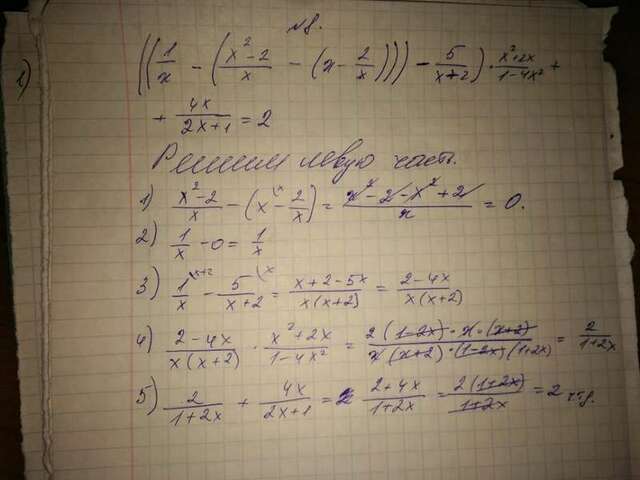 №8.
1) ((1/x - (x²-2/x - (x - 2/x))) - 5/x+2) · x²+2x/1-4x² +
+ 4x/2x+1 = 2
Решим левую часть.
1) x²-2/x - (x - 2/x) = x²-2-x²+2/x = 0.
2) 1/x - 0 = 1/x
3) 1/x - 5/x+2 = x+2-5x/x(x+2) = 2-4x/x(x+2)
4) 2-4x/x(x+2) · x²+2x/1-4x² = 2(1-2x)·x·(x+2)/x(x+2)·(1-2x)(1+2x) = 2/1+2x
5) 2/1+2x + 4x/2x+1 = 2+4x/1+2x = 2(1+2x)/1+2x = 2 чтд.